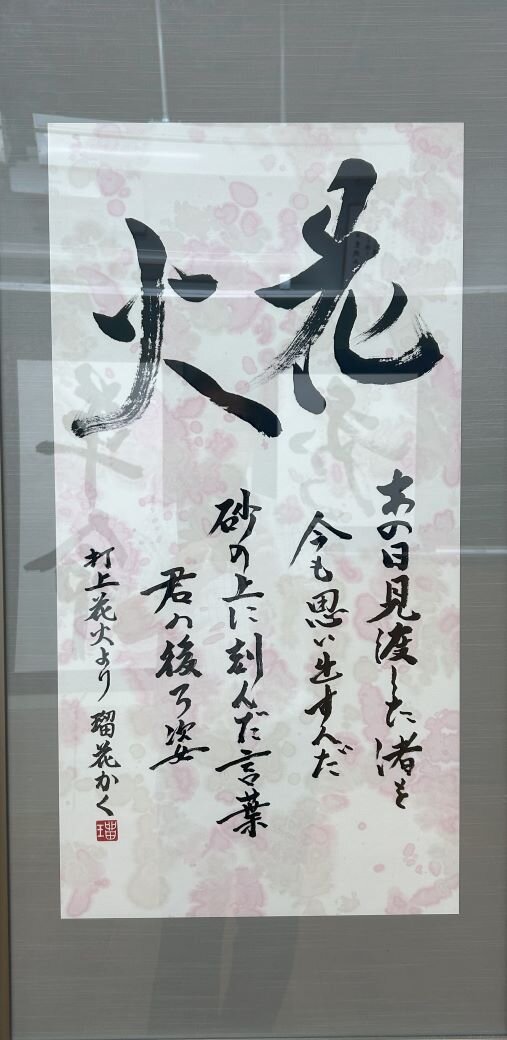 花火
あの日見渡した渚を
今も思い出すんだ
砂の上に刻んだ言葉
君の後ろ姿
打上花火より 瑠花かく